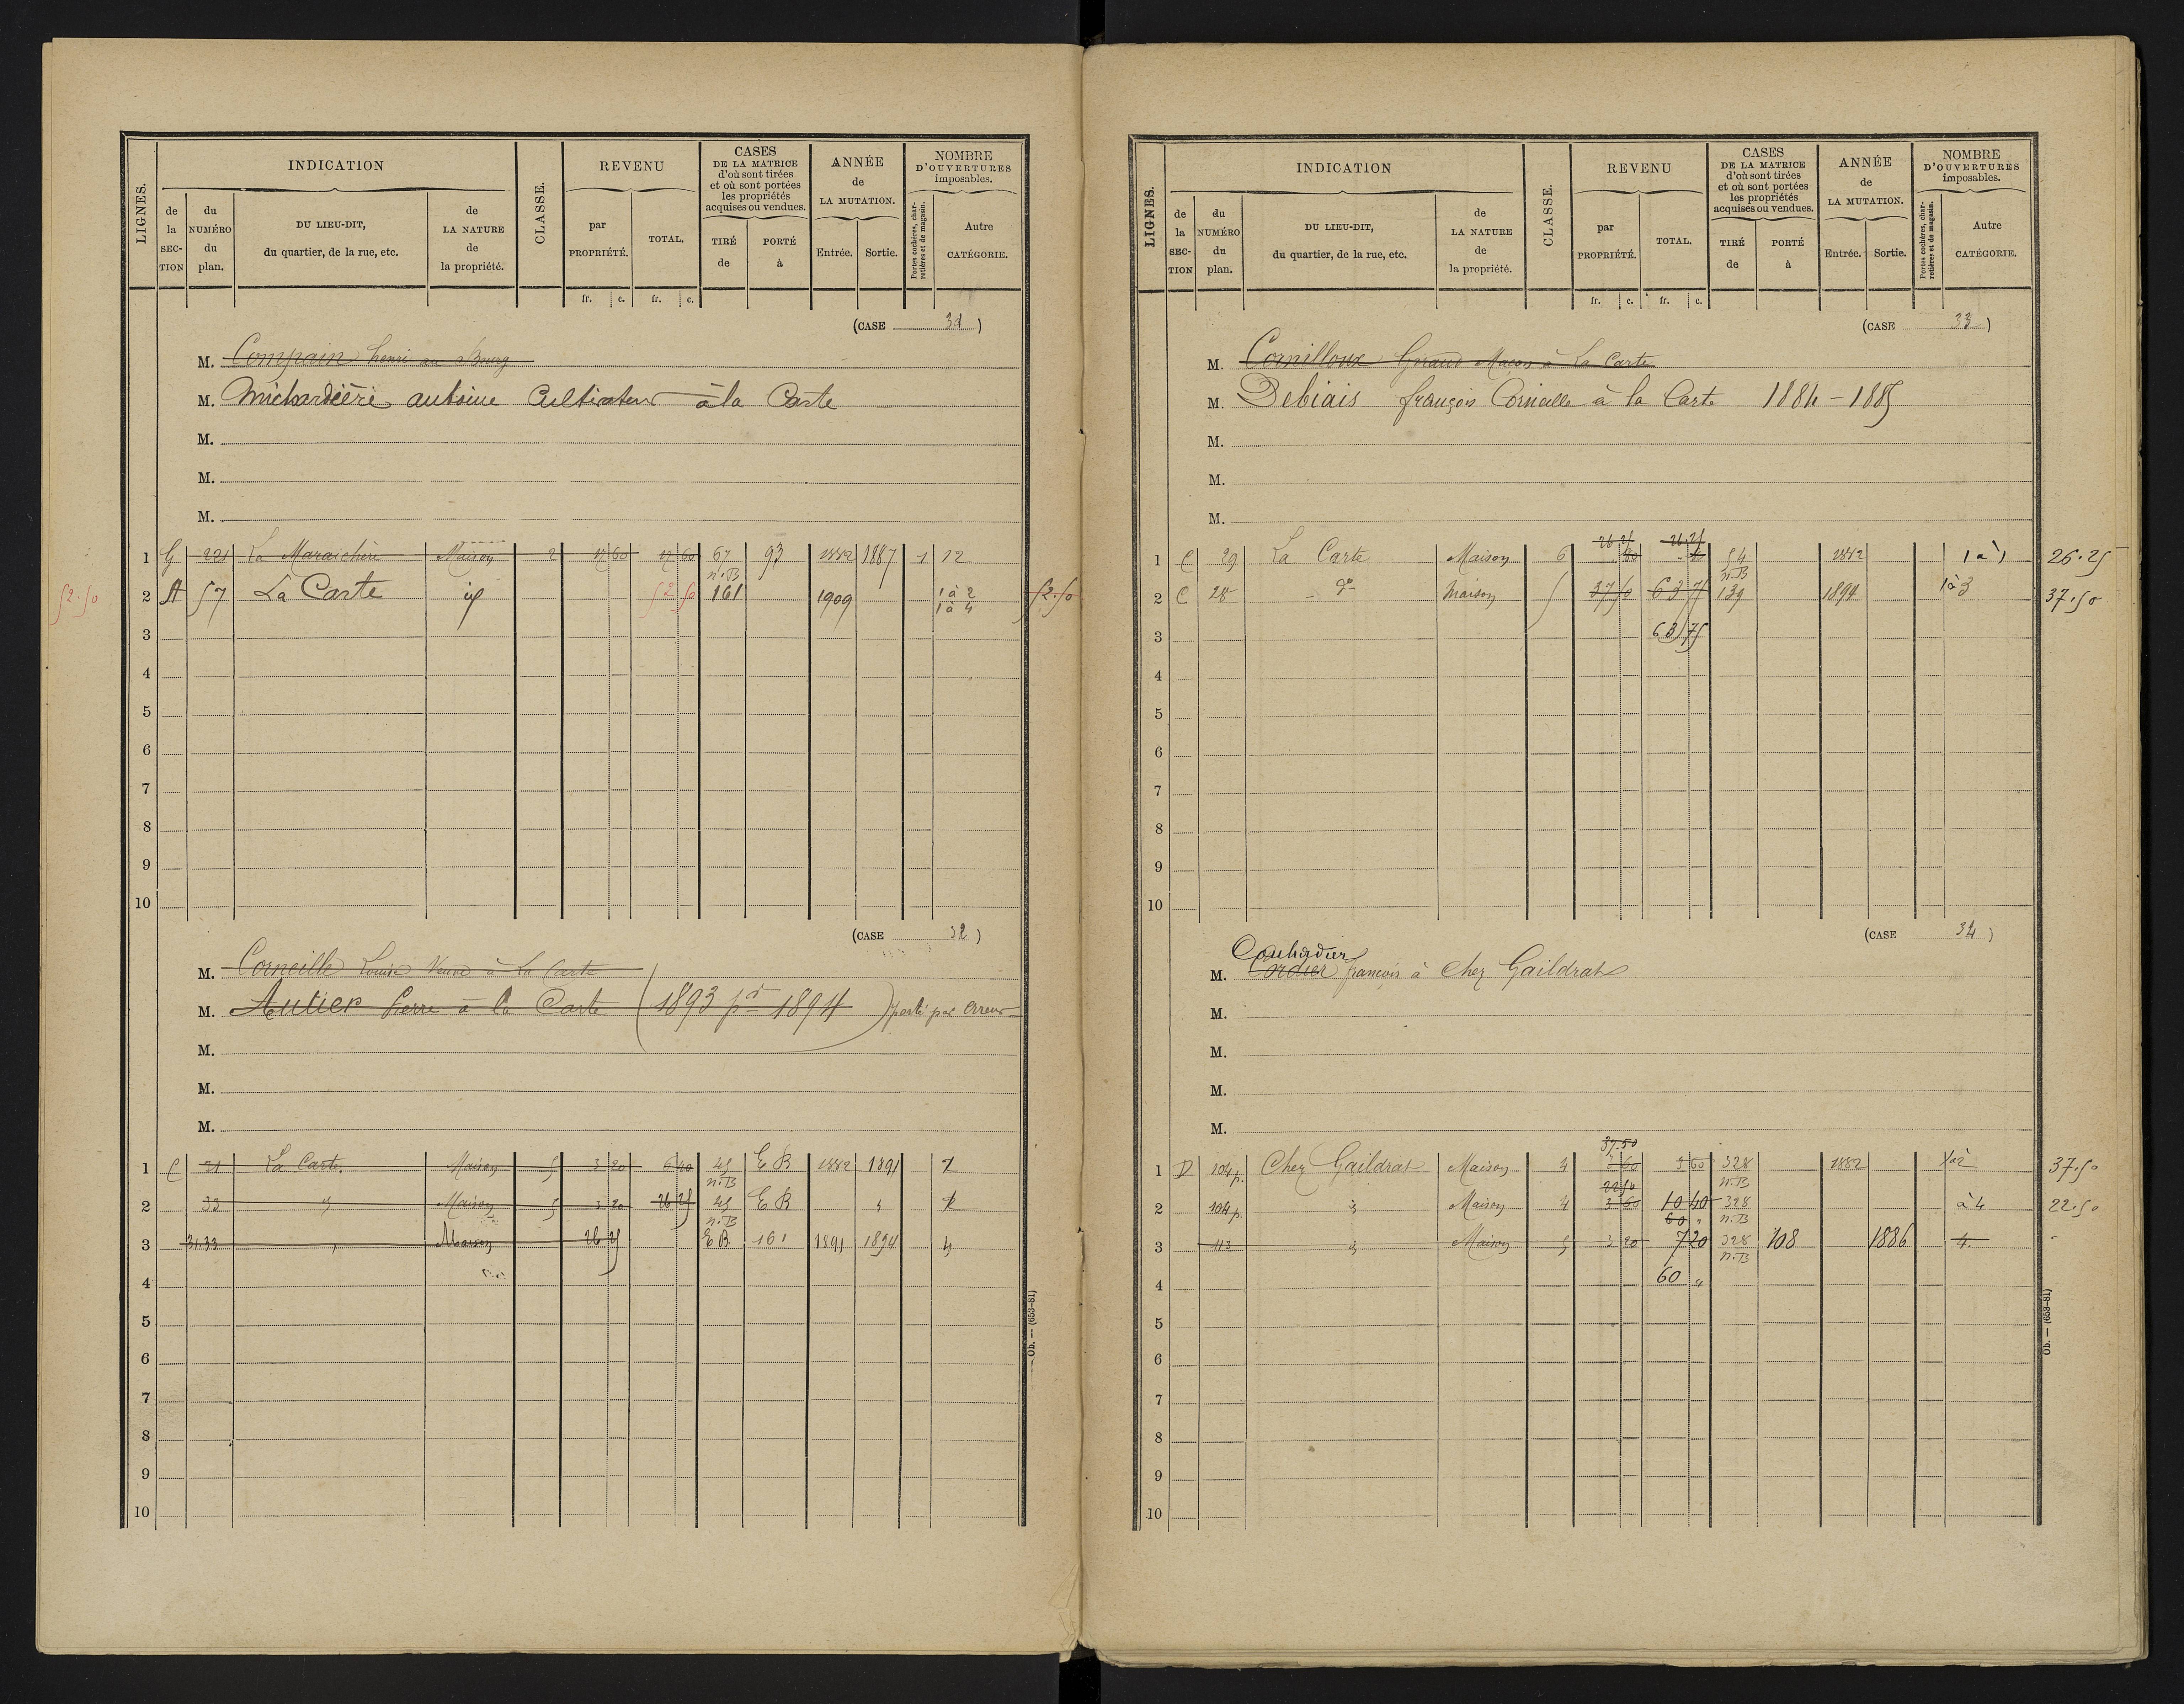 LIGNES.
INDICATION
de la SECTION
du NUMÉRO du plan.
DU LIEU-DIT, du quartier, de la rue, etc.
de LA NATURE de la propriété.
CLASSE.
REVENU
par PROPRIÉTÉ.
TOTAL.
CASES DE LA MATRICE d'où sont tirées et où sont portées les propriétés acquises ou vendues.
TIRÉ de
PORTÉ à
ANNÉE de LA MUTATION.
Entrée.
Sortie.
NOMBRE D'OUVERTURES imposables.
Portes cochères, charretières et de magasin.
Autre CATÉGORIE.
fr. c. fr. c.
(CASE 31)
M. Compain henri au Bourg
M. Michardière antoine Cultivateur à la Carte
M.
M.
M.
1 G 221 La Maraichère Maison 2 17 60 17 60 67 93 1882 1887 1 12
n.B
52.50 2 A 57 La Carte id 52 50 161 1909 1 à 2 52.50
1 à 4
3
4
5
6
7
8
9
10
(CASE 32)
M. Corneille Louise Veuve à La Carte
M. Autier Pierre à la Carte (1893 pr 1894) porté par erreur
M.
M.
M.
1 C 31 La Carte Maison 5 3 20 6 40 45 E B 1882 1891 2
n.B
2 33 " Maison 5 3 20 26 25 45 E B " 2
n.B
3 31.33 " Maison 26 25 E B 161 1891 1894 4
4
5
6
7
8
9
10
Ob. — (653-81)
LIGNES.
INDICATION
de la SECTION
du NUMÉRO du plan.
DU LIEU-DIT, du quartier, de la rue, etc.
de LA NATURE de la propriété.
CLASSE.
REVENU
par PROPRIÉTÉ.
TOTAL.
CASES DE LA MATRICE d'où sont tirées et où sont portées les propriétés acquises ou vendues.
TIRÉ de
PORTÉ à
ANNÉE de LA MUTATION.
Entrée.
Sortie.
NOMBRE D'OUVERTURES imposables.
Portes cochères, charretières et de magasin.
Autre CATÉGORIE.
fr. c. fr. c.
(CASE 33)
M. Cornilloux Giraud Maçon à La Carte
M. Debiais françois Corneille à la Carte 1884-1885
M.
M.
M.
26 25 26.25
1 C 29 La Carte Maison 6 80 54 1882 1 à 1 26.25
n.B
2 C 28 do Maison 5 37 50 63 75 139 1894 1 à 3 37.50
3 63 75
4
5
6
7
8
9
10
(CASE 34)
Couhadier
M. Cordier françois à Chez Gaildrat
M.
M.
M.
M.
37.50
1 D 104 p. Chez Gaildrat Maison 4 3 60 3 60 328 1882 1 à 2 37.50
22 50 n.B
2 104 p. " Maison 4 3 60 10 40 328 à 4 22.50
60 " n.B
3 113 " Maison 5 3 20 7 20 328 108 1886 4
n.B
4 60 "
5
6
7
8
9
10
Ob. — (653-81)